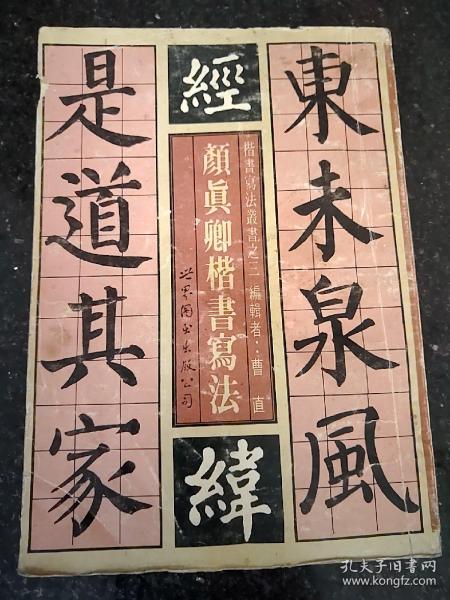 東未泉風
經
楷書寫法叢書之三 編輯者：曹直
顏真卿楷書寫法
世界圖书出版公司
緯
是道其家
孔夫子旧书网
www.kongfz.com